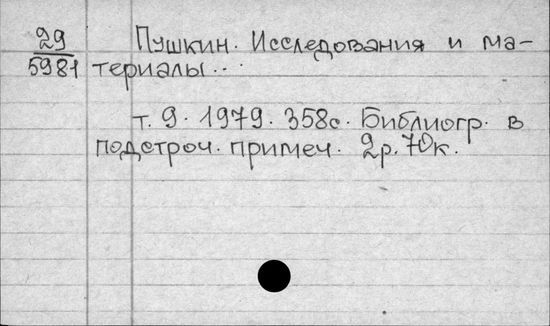 29 Пушкин. Исследования и ма-
5981 териалы...
т. 9. 1979. 358с. Библиогр. в
подстроч. примеч. 2р. 70к.